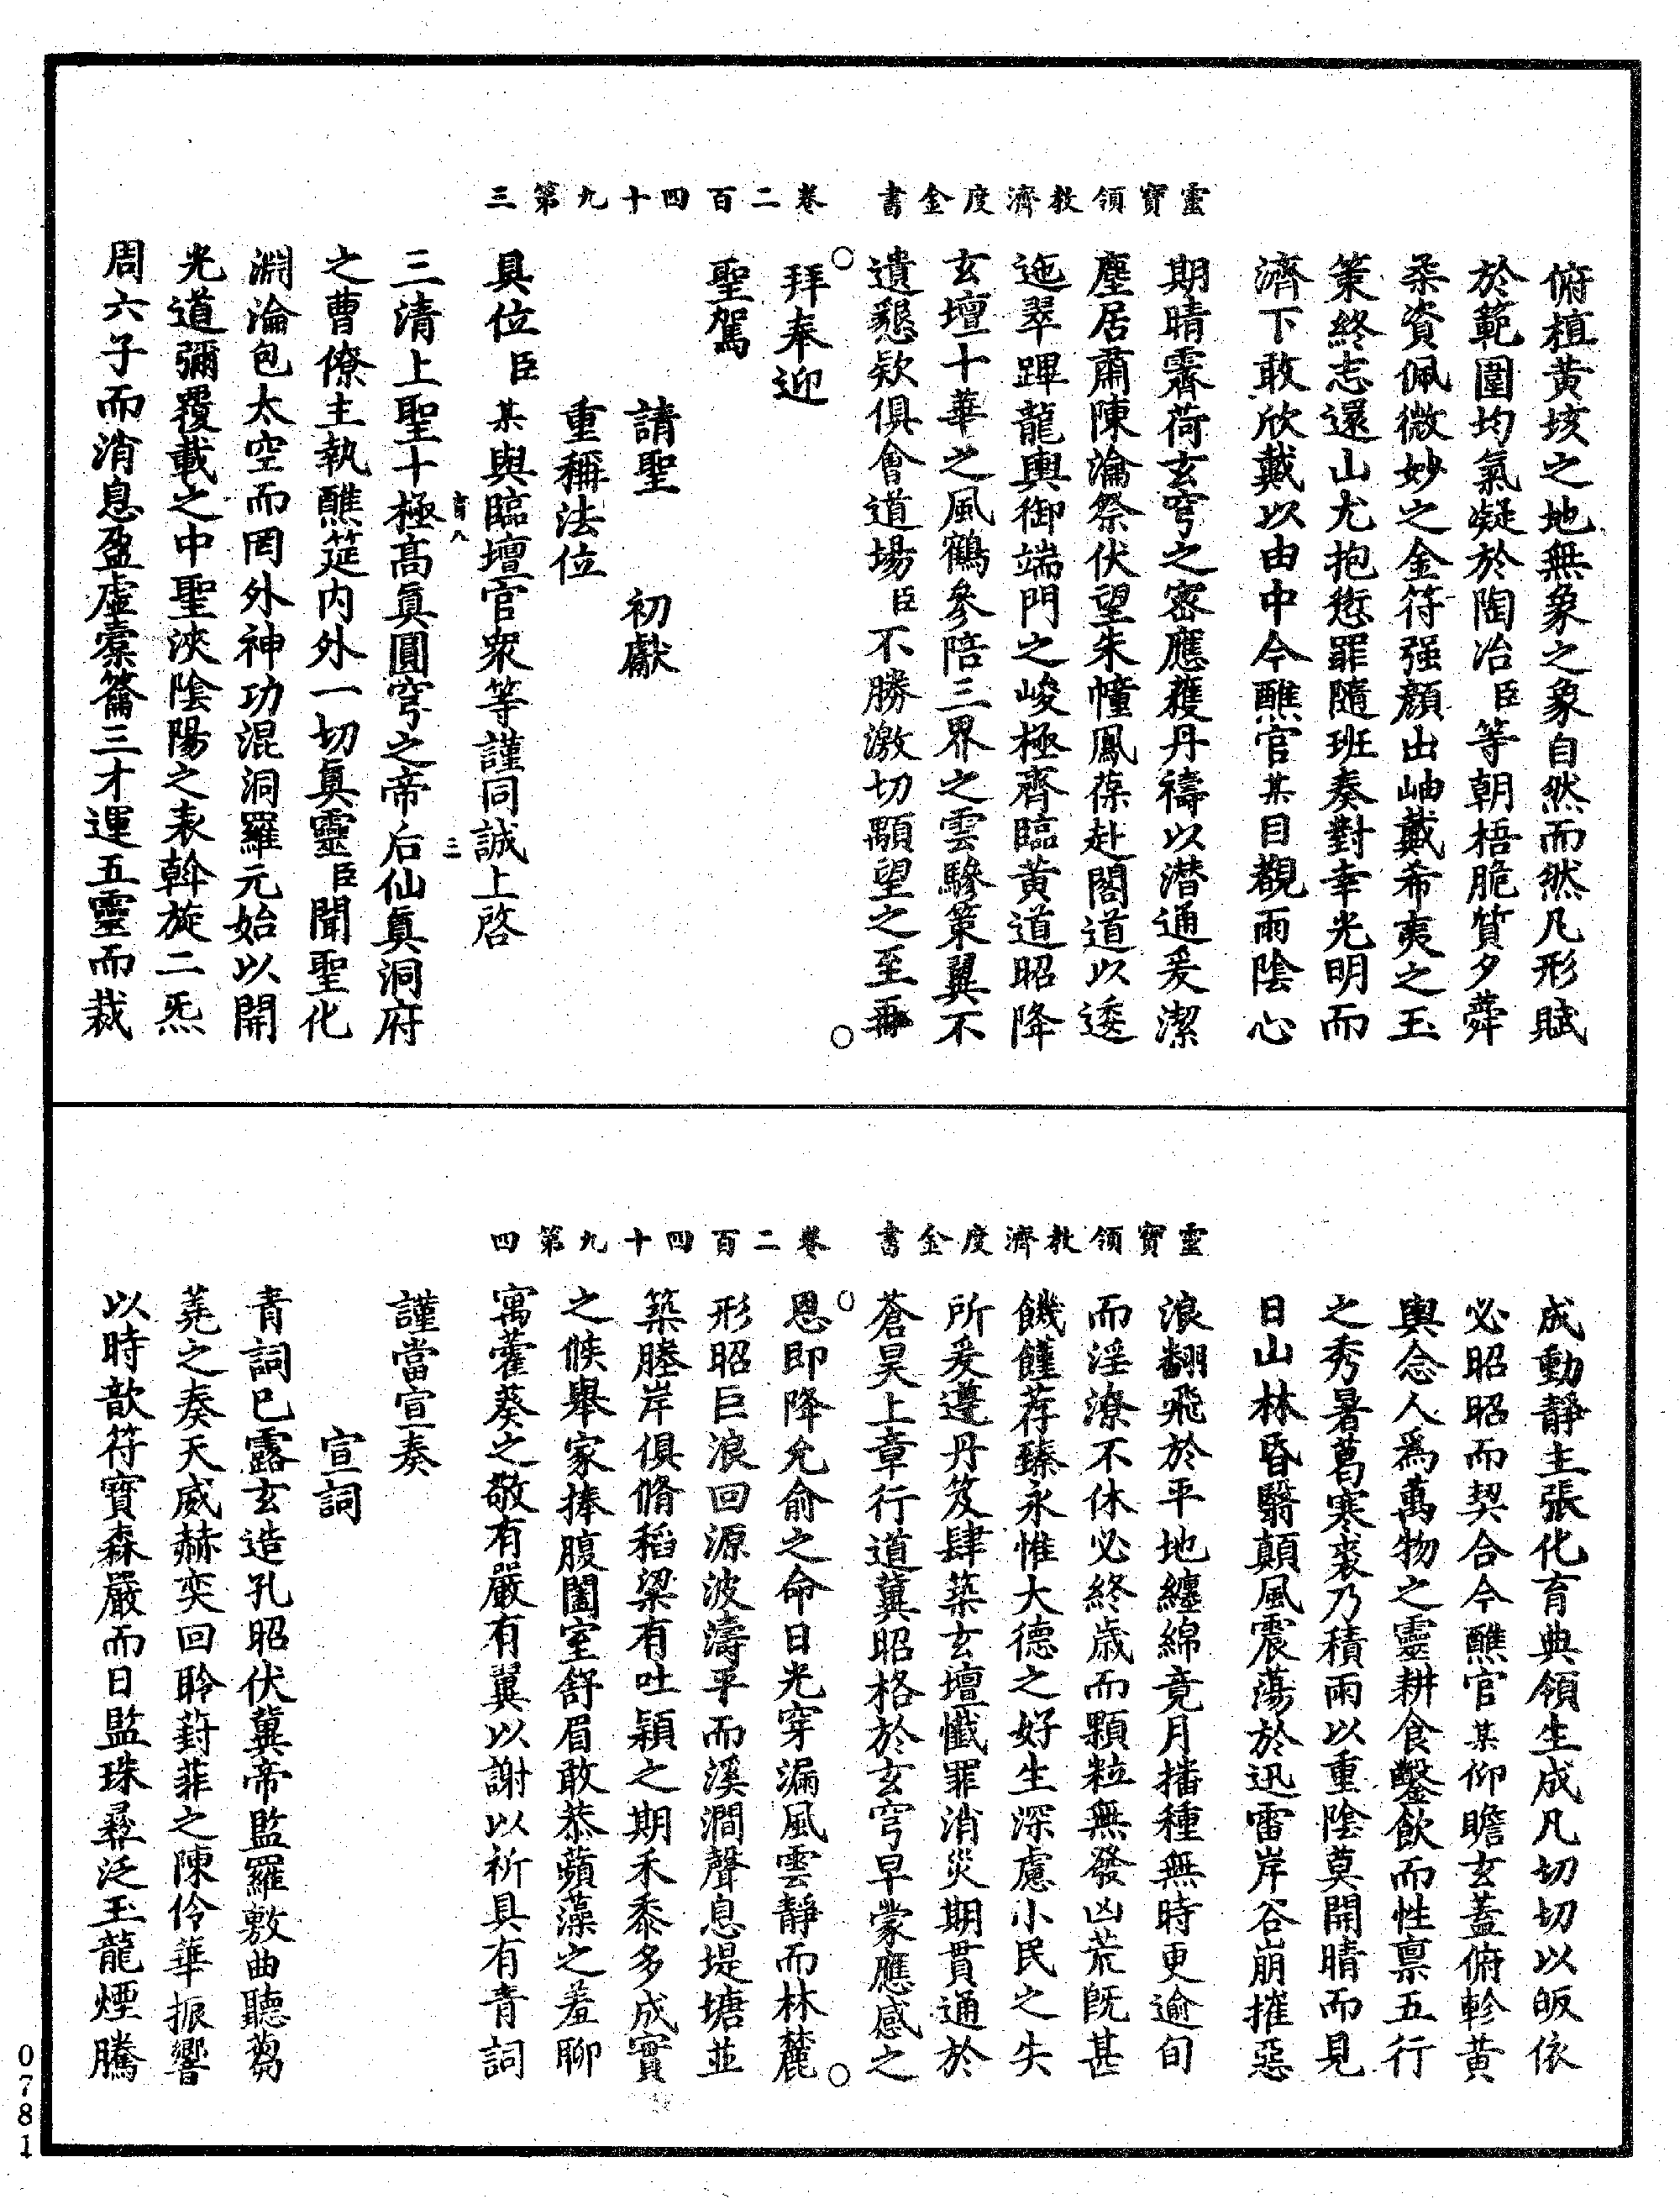 俯植黃垓之地無象之象自然而然凡形賦
於範圍均氣凝於陶冶臣等朝梧脆質夕蕣
柔資佩微妙之金符强顔出岫戴希夷之玉
策終志還山尤抱愆罪隨班奏對幸光明而
濟下敢欣戴以由中今醮官某目覩雨陰心
靈寶領教濟度金書 卷二百四十九第三
期晴霽荷玄穹之密應蕿丹禱以潛通爰潔
塵居肅陳瀹祭伏望朱幢鳳葆赴閤道以逶
迤翠蹕龍輿御端門之峻極齊臨黃道昭降
玄壇十華之風鶴參陪三界之雲驂策翼不
遺懇欵俱會道場臣不勝激切顒望之至再
拜奉迎
聖駕
請聖 初獻
重稱法位
具位臣某與臨壇官衆等謹同誠上啓
三清上聖十極高眞圓穹之帝后仙眞洞府
之曹僚主執醮筵内外一切眞靈臣聞聖化
淵淪包太空而罔外神功混洞羅元始以開
光道彌覆載之中聖浹陰陽之表斡旋二炁
周六子而消息盈虛橐籥三才運五靈而裁
成動靜主張化育典領生成凡切切以皈依
必昭昭而契合今醮官某仰瞻玄蓋俯軫黃
輿念人爲萬物之靈耕食鑿飲而性禀五行
之秀暑葛寒裘乃積雨以重陰莫開晴而見
日山林昏翳顛風震蕩於迅雷岸谷崩摧惡
靈寶領教濟度金書 卷二百四十九第四
浪翻飛於平地纏綿竟月播種無時更逾旬
而淫潦不休必終歲而顆粒無發凶荒既甚
饑饉荐臻永惟大德之好生深慮小民之失
所爰遵丹笈肆築玄壇懺罪消災期貫通於
蒼昊上章行道冀昭格於玄穹早蒙應感之
恩即降允俞之命日光穿漏風雲靜而林麓
形昭巨浪回源波濤平而溪澗聲息堤塘並
築塍岸俱脩稻粱有吐穎之期禾黍多成實
之候舉家捧腹闔室舒眉敢恭蘋藻之羞聊
寓藿葵之敬有嚴有翼以謝以祈具有青詞
謹當宣奏
宣詞
青詞已露玄造孔昭伏冀帝監羅敷曲聽芻
蕘之奏天威赫奕回聆葑菲之陳伶華振響
以時歆符寶森嚴而日監珠彛泛玉龍煙騰
0781